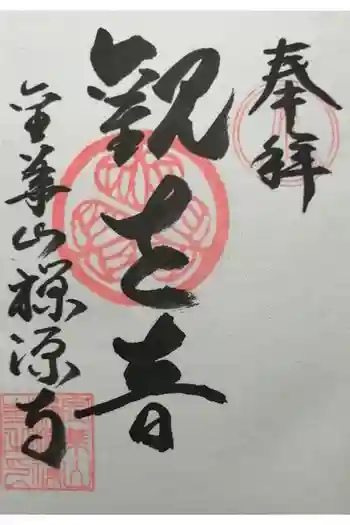 奉拝
観世音
金華山禅源寺